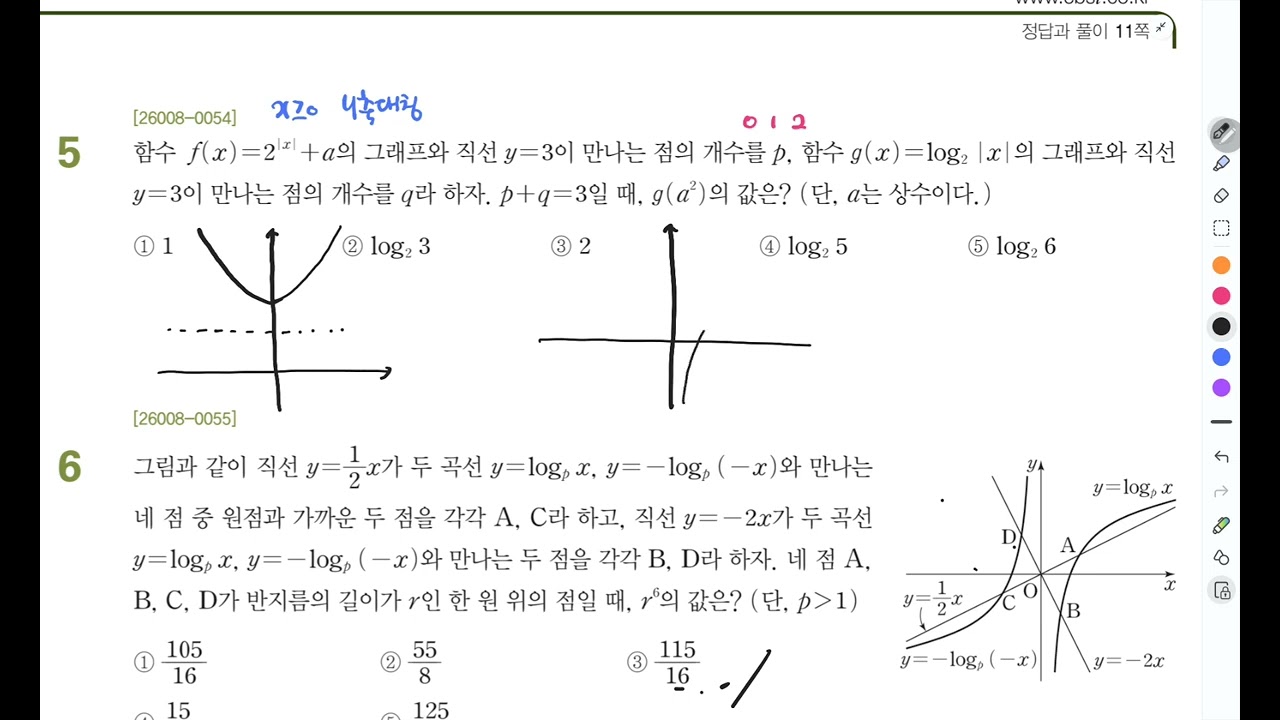 정답과 풀이 11쪽
[26008-0054] x≥0 y축대칭
0 1 2
5 함수 f(x)=2^{|x|}+a의 그래프와 직선 y=3이 만나는 점의 개수를 p, 함수 g(x)=log₂ |x|의 그래프와 직선
y=3이 만나는 점의 개수를 q라 하자. p+q=3일 때, g(a²)의 값은? (단, a는 상수이다.)
① 1 ② log₂ 3 ③ 2 ④ log₂ 5 ⑤ log₂ 6
[26008-0055]
6 그림과 같이 직선 y=1/2x가 두 곡선 y=logₚ x, y=-logₚ (-x)와 만나는
네 점 중 원점과 가까운 두 점을 각각 A, C라 하고, 직선 y=-2x가 두 곡선
y=logₚ x, y=-logₚ (-x)와 만나는 두 점을 각각 B, D라 하자. 네 점 A,
B, C, D가 반지름의 길이가 r인 한 원 위의 점일 때, r⁶의 값은? (단, p>1)
① 105/16 ② 55/8 ③ 115/16
15 125
y
y=logₚ x
D A
x
y=1/2x C O B
y=-logₚ (-x) y=-2x